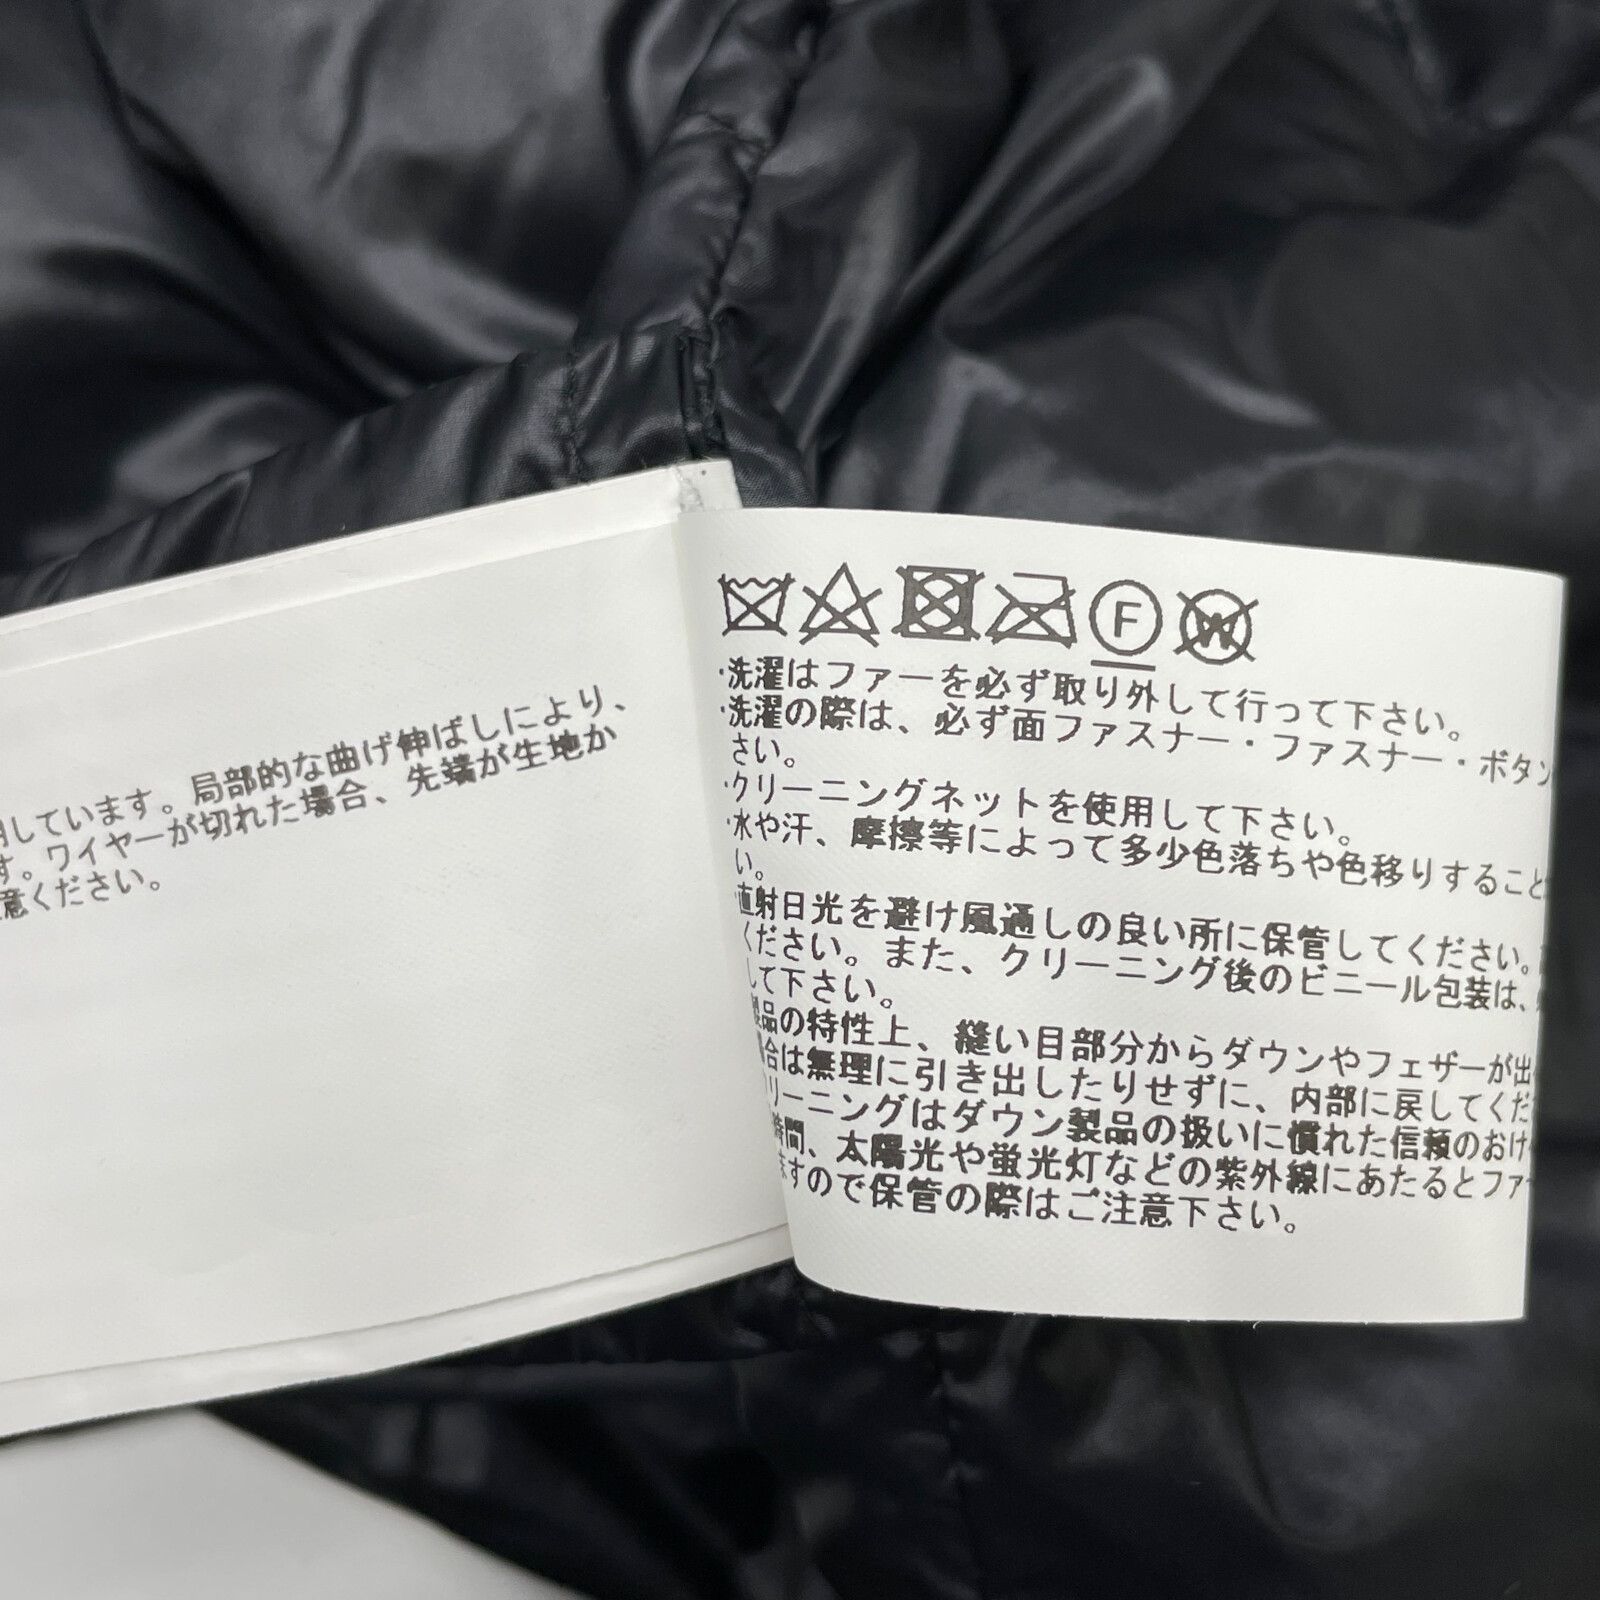 しています。局部的な曲げ伸ばしにより、
す。ワイヤーが切れた場合、先端が生地か
意ください。
F
W
・洗濯はファーを必ず取り外して行って下さい。
・洗濯の際は、必ず面ファスナー・ファスナー・ボタン
さい。
・クリーニングネットを使用して下さい。
・水や汗、摩擦等によって多少色落ちや色移りすること
い。
・直射日光を避け風通しの良い所に保管してください。
ください。また、クリーニング後のビニール包装は、
して下さい。
製品の特性上、縫い目部分からダウンやフェザーが出
場合は無理に引き出したりせずに、内部に戻してくだ
リーニングはダウン製品の扱いに慣れた信頼のおけ
時間、太陽光や蛍光灯などの紫外線にあたるとファ
ますので保管の際はご注意下さい。